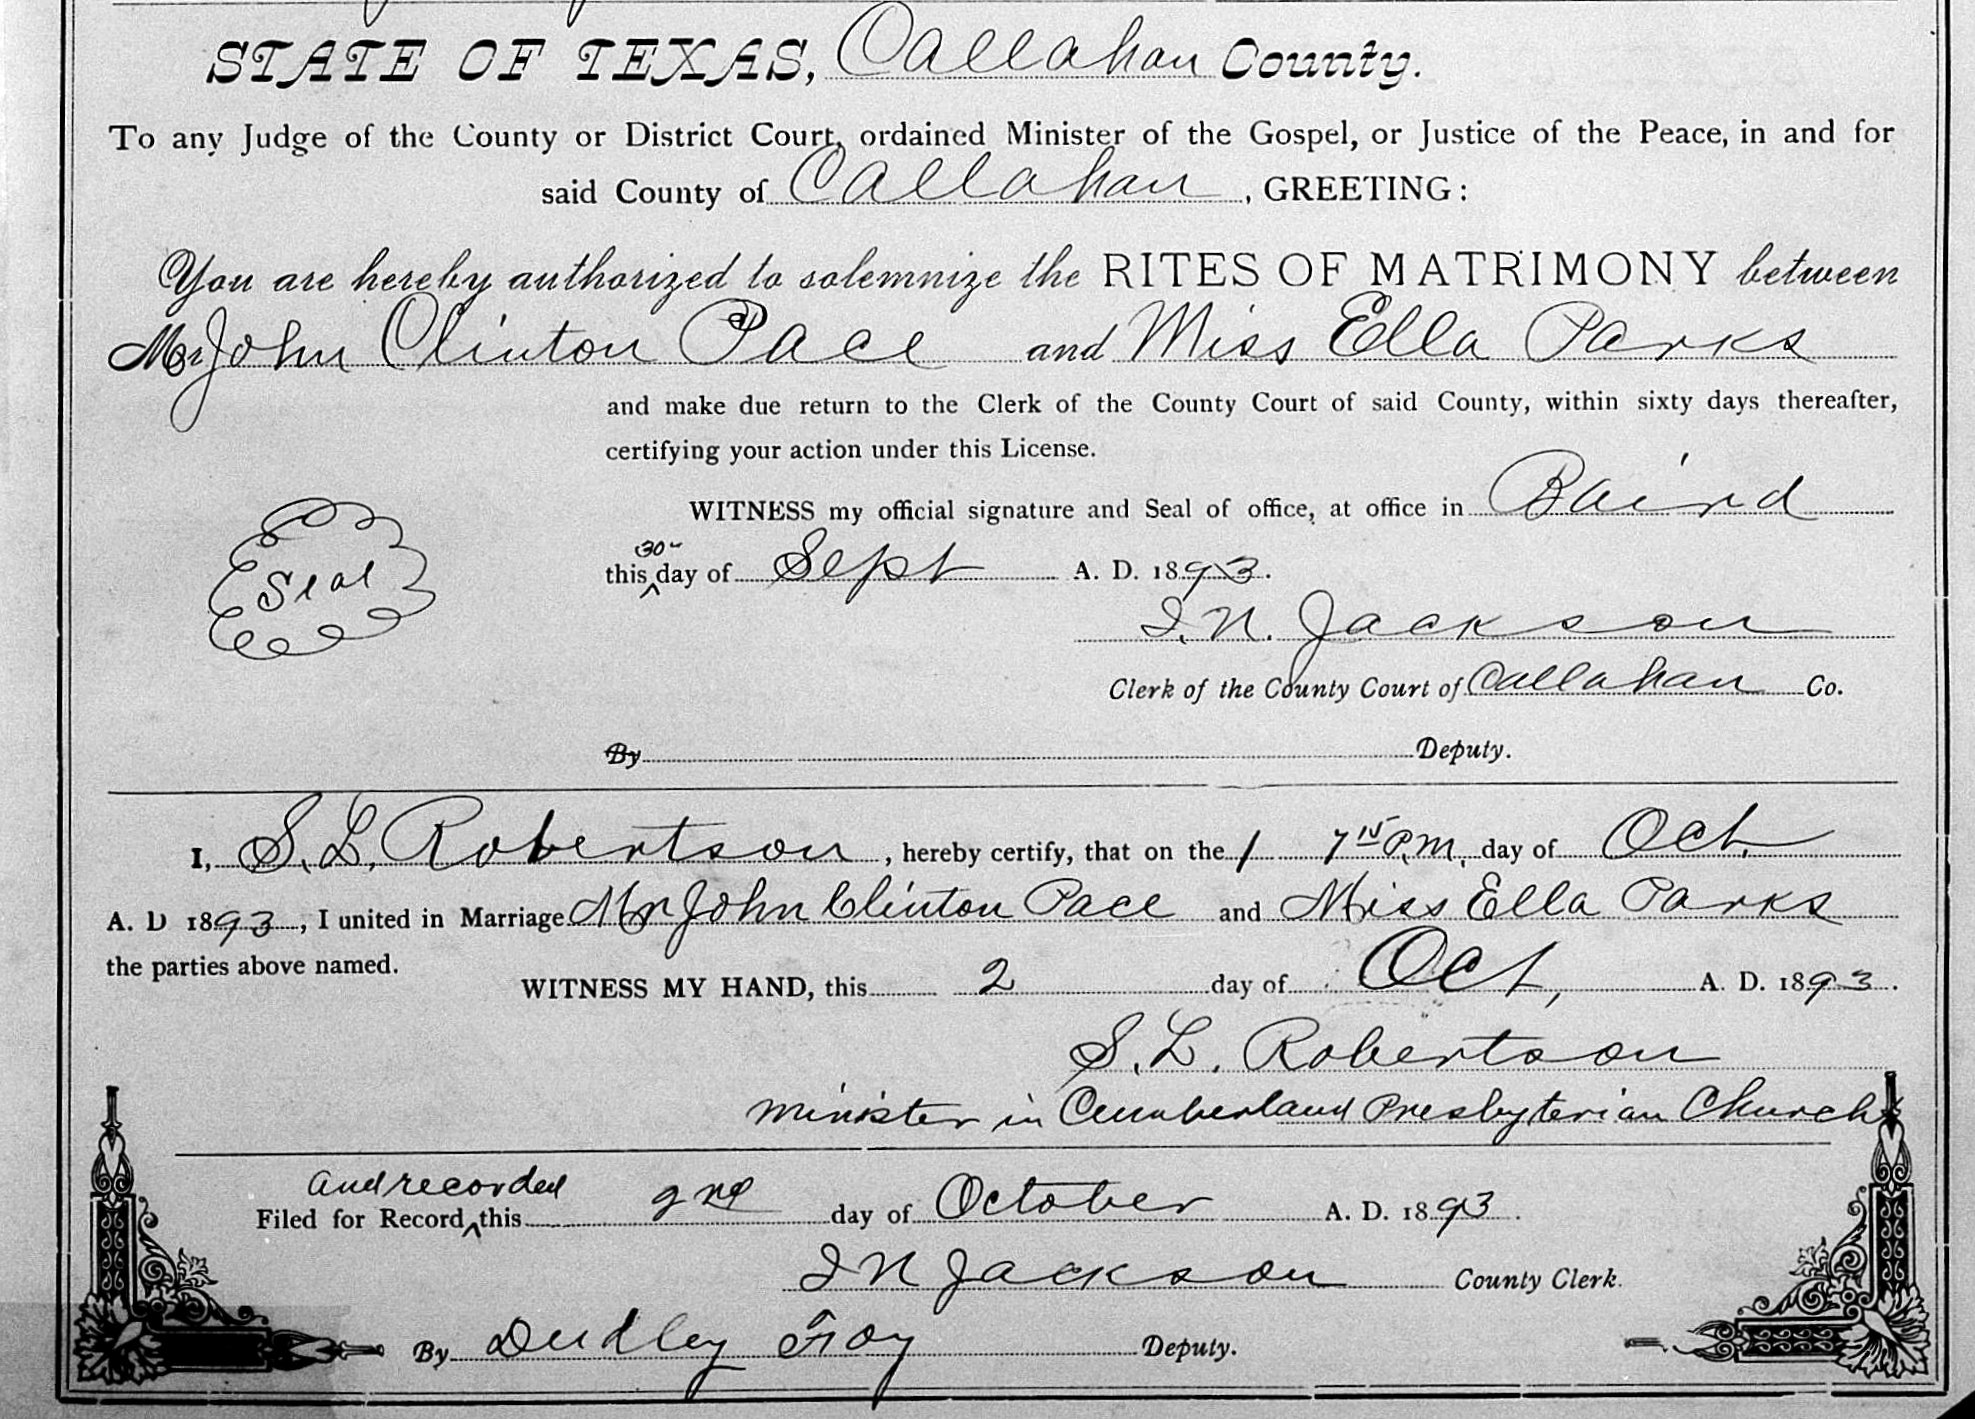 STATE OF TEXAS, Callahan County.
To any Judge of the County or District Court, ordained Minister of the Gospel, or Justice of the Peace, in and for
said County of Callahan, GREETING:
You are hereby authorized to solemnize the RITES OF MATRIMONY between
Mr John Clinton Pace and Miss Ella Parks
and make due return to the Clerk of the County Court of said County, within sixty days thereafter,
certifying your action under this License.
WITNESS my official signature and Seal of office, at office in Baird
Seal
this 30 day of Sept A. D. 1893.
I. N. Jackson
Clerk of the County Court of Callahan Co.
By Deputy.
I, S. L. Robertson, hereby certify, that on the 1 7 15 P.M. day of Oct.
A. D 1893, I united in Marriage Mr John Clinton Pace and Miss Ella Parks
the parties above named.
WITNESS MY HAND, this 2 day of Oct, A. D. 1893.
S. L. Robertson
minister in Cumberland Presbyterian Church
Filed for Record and recorded this 2nd day of October A. D. 1893.
I N Jackson County Clerk.
By Dudley Foy Deputy.